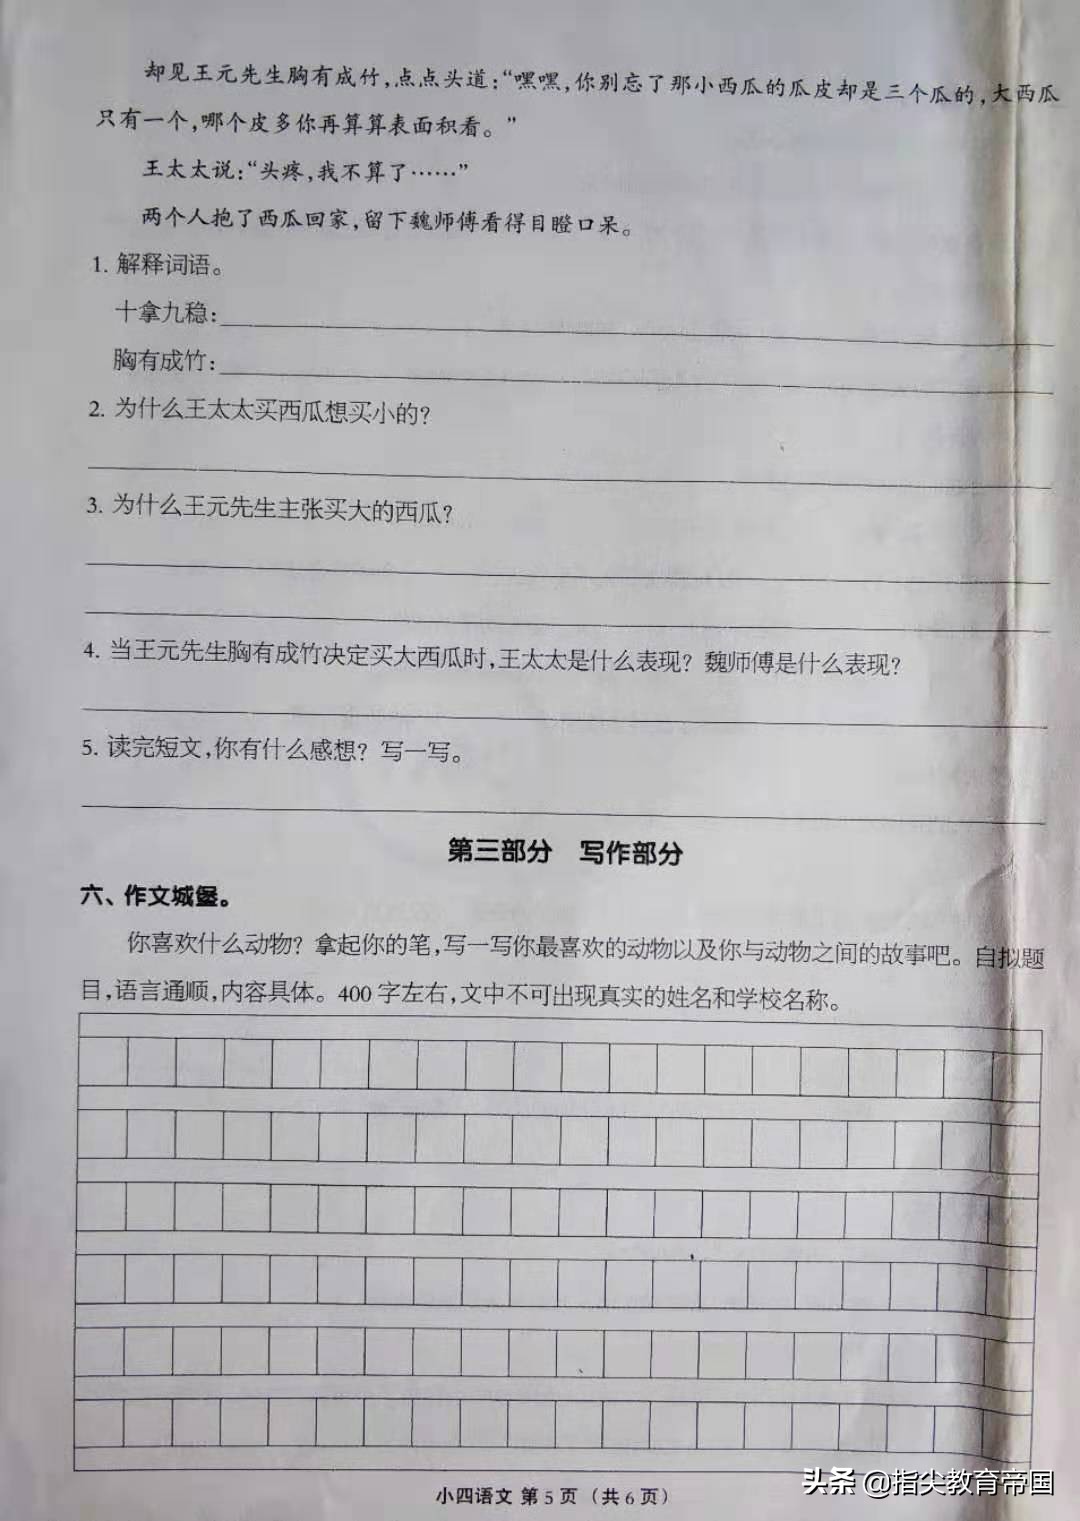 却见王元先生胸有成竹,点点头道:“嘿嘿,你别忘了那小西瓜的瓜皮却是三个瓜的,大西瓜
只有一个,哪个皮多你再算算表面积看。”
王太太说:“头疼,我不算了……”
两个人抱了西瓜回家,留下魏师傅看得目瞪口呆。
1. 解释词语。
十拿九稳:
胸有成竹:
2. 为什么王太太买西瓜想买小的?
3. 为什么王元先生主张买大的西瓜?
4. 当王元先生胸有成竹决定买大西瓜时,王太太是什么表现? 魏师傅是什么表现?
5. 读完短文,你有什么感想? 写一写。
第三部分 写作部分
六、作文城堡。
你喜欢什么动物? 拿起你的笔,写一写你最喜欢的动物以及你与动物之间的故事吧。自拟题
目,语言通顺,内容具体。400字左右,文中不可出现真实的姓名和学校名称。
小四语文 第5页 (共6页)
头条 @指尖教育帝国